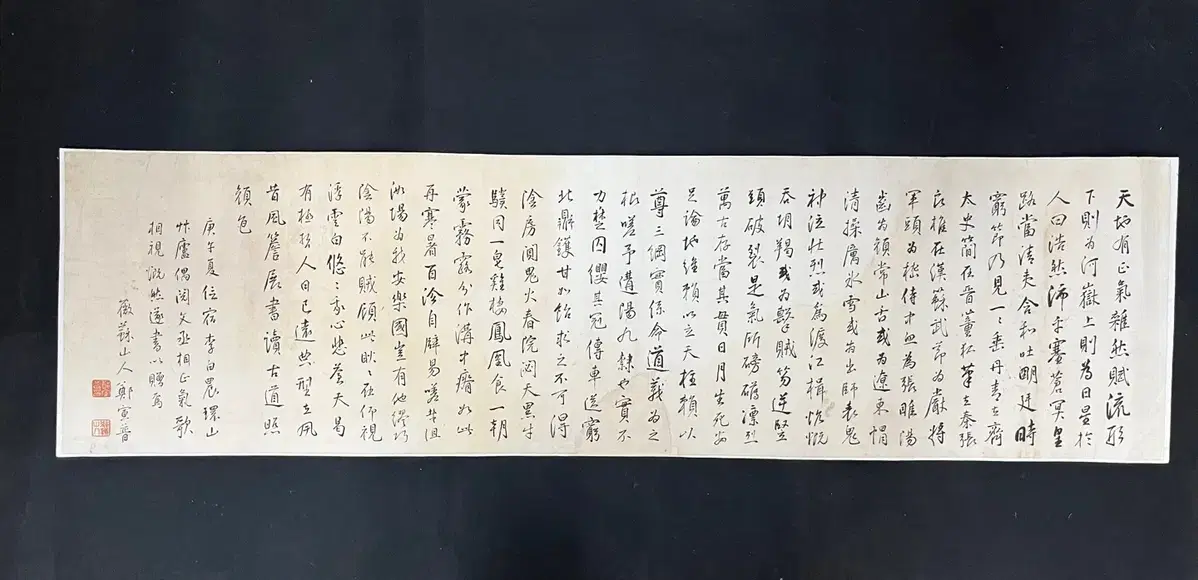 天地有正氣雜然賦流形
下則為河嶽上則為日星於
人曰浩然沛乎塞蒼冥皇
路當清夷含和吐明廷時
窮節乃見一〻垂丹青在齊
太史簡在晉董狐筆在秦張
良椎在漢蘇武節為嚴將
軍頭為嵇侍中血為張睢陽
齒為顏常山舌或為遼東帽
清操厲冰雪或為出師表鬼
神泣壯烈或為渡江楫慷慨
吞胡羯或為擊賊笏逆豎
頭破裂是氣所磅礴凜烈
萬古存當其貫日月生死安
足論地維賴以立天柱賴以
尊三綱實係命道義為之
根嗟予遘陽九隸也實不
力楚囚纓其冠傳車送窮
北鼎鑊甘如飴求之不可得
陰房闃鬼火春院閟天黑牛
驥同一皂雞棲鳳凰食一朝
蒙霧露分作溝中瘠如此
再寒暑百沴自辟易嗟哉沮
洳場為我安樂國豈有他繆巧
陰陽不能賊顧此耿〻在仰視
浮雲白悠〻我心悲蒼天曷
有極哲人日已遠典型在夙
昔風簷展書讀古道照
顏色
庚午夏位宕李白農環山
艸廬偶閱文丞相正氣歌
相視慨然遂書以贈焉
薇蘇山人鄭寅普